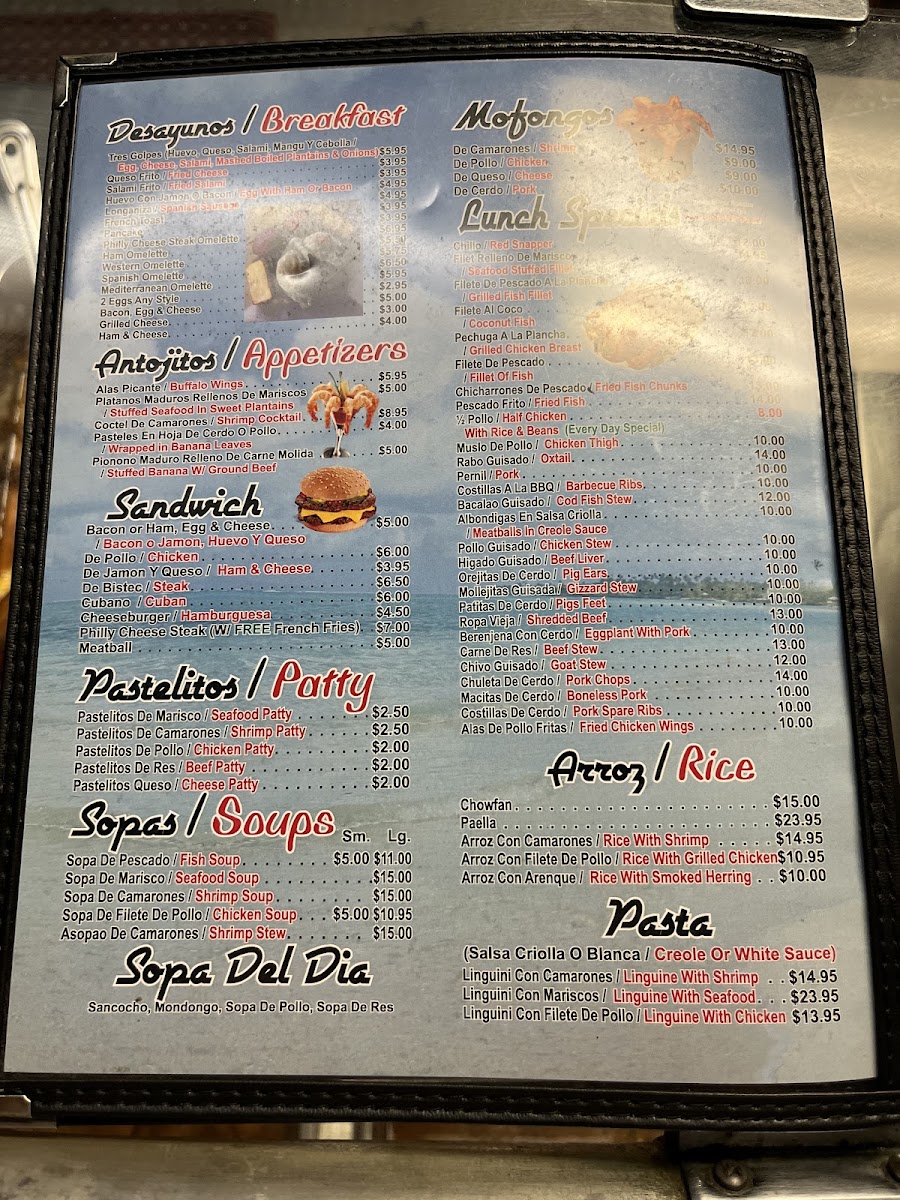 Desayunos / Breakfast
Tres Golpes (Huevo, Queso, Salami, Mangu Y Cebolla /
Egg, Cheese, Salami, Mashed Boiled Plantains & Onions) $5.95
Queso Frito / Fried Cheese $3.95
Salami Frito / Fried Salami $3.95
Huevo Con Jamon O Bacon / Egg With Ham Or Bacon $4.95
Longaniza / Spanish Sausage $4.95
French Toast $3.95
Pancake $3.95
Philly Cheese Steak Omelette
Ham Omelette
Western Omelette
Spanish Omelette $6.50
Mediterranean Omelette $5.95
2 Eggs Any Style $2.95
Bacon, Egg & Cheese $5.00
Grilled Cheese $3.00
Ham & Cheese $4.00
Antojitos / Appetizers
Alas Picante / Buffalo Wings $5.95
Platanos Maduros Rellenos De Mariscos $5.00
/ Stuffed Seafood In Sweet Plantains
Coctel De Camarones / Shrimp Cocktail $8.95
Pasteles En Hoja De Cerdo O Pollo $4.00
/ Wrapped in Banana Leaves
Pionono Maduro Relleno De Carne Molida $5.00
/ Stuffed Banana W/ Ground Beef
Sandwich
Bacon or Ham, Egg & Cheese $5.00
/ Bacon o Jamon, Huevo Y Queso
De Pollo / Chicken $6.00
De Jamon Y Queso / Ham & Cheese $3.95
De Bistec / Steak $6.50
Cubano / Cuban $6.00
Cheeseburger / Hamburguesa $4.50
Philly Cheese Steak (W/ FREE French Fries) $7.00
Meatball $5.00
Pastelitos / Patty
Pastelitos De Marisco / Seafood Patty $2.50
Pastelitos De Camarones / Shrimp Patty $2.50
Pastelitos De Pollo / Chicken Patty $2.00
Pastelitos De Res / Beef Patty $2.00
Pastelitos Queso / Cheese Patty $2.00
Sopas / Soups Sm. Lg.
Sopa De Pescado / Fish Soup $5.00 $11.00
Sopa De Marisco / Seafood Soup $15.00
Sopa De Camarones / Shrimp Soup $15.00
Sopa De Filete De Pollo / Chicken Soup $5.00 $10.95
Asopao De Camarones / Shrimp Stew $15.00
Sopa Del Dia
Sancocho, Mondongo, Sopa De Pollo, Sopa De Res
Mofongos
De Camarones / Shrimp $14.95
De Pollo / Chicken $9.00
De Queso / Cheese $9.00
De Cerdo / Pork $10.00
Lunch Specials
Chillo / Red Snapper
Filet Relleno De Mariscos
/ Seafood Stuffed Fillet
Filete De Pescado A La Plancha
/ Grilled Fish Fillet
Filete Al Coco
/ Coconut Fish
Pechuga A La Plancha
/ Grilled Chicken Breast
Filete De Pescado
/ Fillet Of Fish
Chicharrones De Pescado / Fried Fish Chunks
Pescado Frito / Fried Fish 14.00
½ Pollo / Half Chicken 8.00
With Rice & Beans (Every Day Special)
Muslo De Pollo / Chicken Thigh 10.00
Rabo Guisado / Oxtail 14.00
Pernil / Pork 10.00
Costillas A La BBQ / Barbecue Ribs 10.00
Bacalao Guisado / Cod Fish Stew 12.00
Albondigas En Salsa Criolla 10.00
/ Meatballs in Creole Sauce
Pollo Guisado / Chicken Stew 10.00
Higado Guisado / Beef Liver 10.00
Orejitas De Cerdo / Pig Ears 10.00
Mollejitas Guisada / Gizzard Stew 10.00
Patitas De Cerdo / Pigs Feet 10.00
Ropa Vieja / Shredded Beef 13.00
Berenjena Con Cerdo / Eggplant With Pork 10.00
Carne De Res / Beef Stew 13.00
Chivo Guisado / Goat Stew 12.00
Chuleta De Cerdo / Pork Chops 14.00
Macitas De Cerdo / Boneless Pork 10.00
Costillas De Cerdo / Pork Spare Ribs 10.00
Alas De Pollo Fritas / Fried Chicken Wings 10.00
Arroz / Rice
Chowfan $15.00
Paella $23.95
Arroz Con Camarones / Rice With Shrimp $14.95
Arroz Con Filete De Pollo / Rice With Grilled Chicken $10.95
Arroz Con Arenque / Rice With Smoked Herring $10.00
Pasta
(Salsa Criolla O Blanca / Creole Or White Sauce)
Linguini Con Camarones / Linguine With Shrimp $14.95
Linguini Con Mariscos / Linguine With Seafood $23.95
Linguini Con Filete De Pollo / Linguine With Chicken $13.95